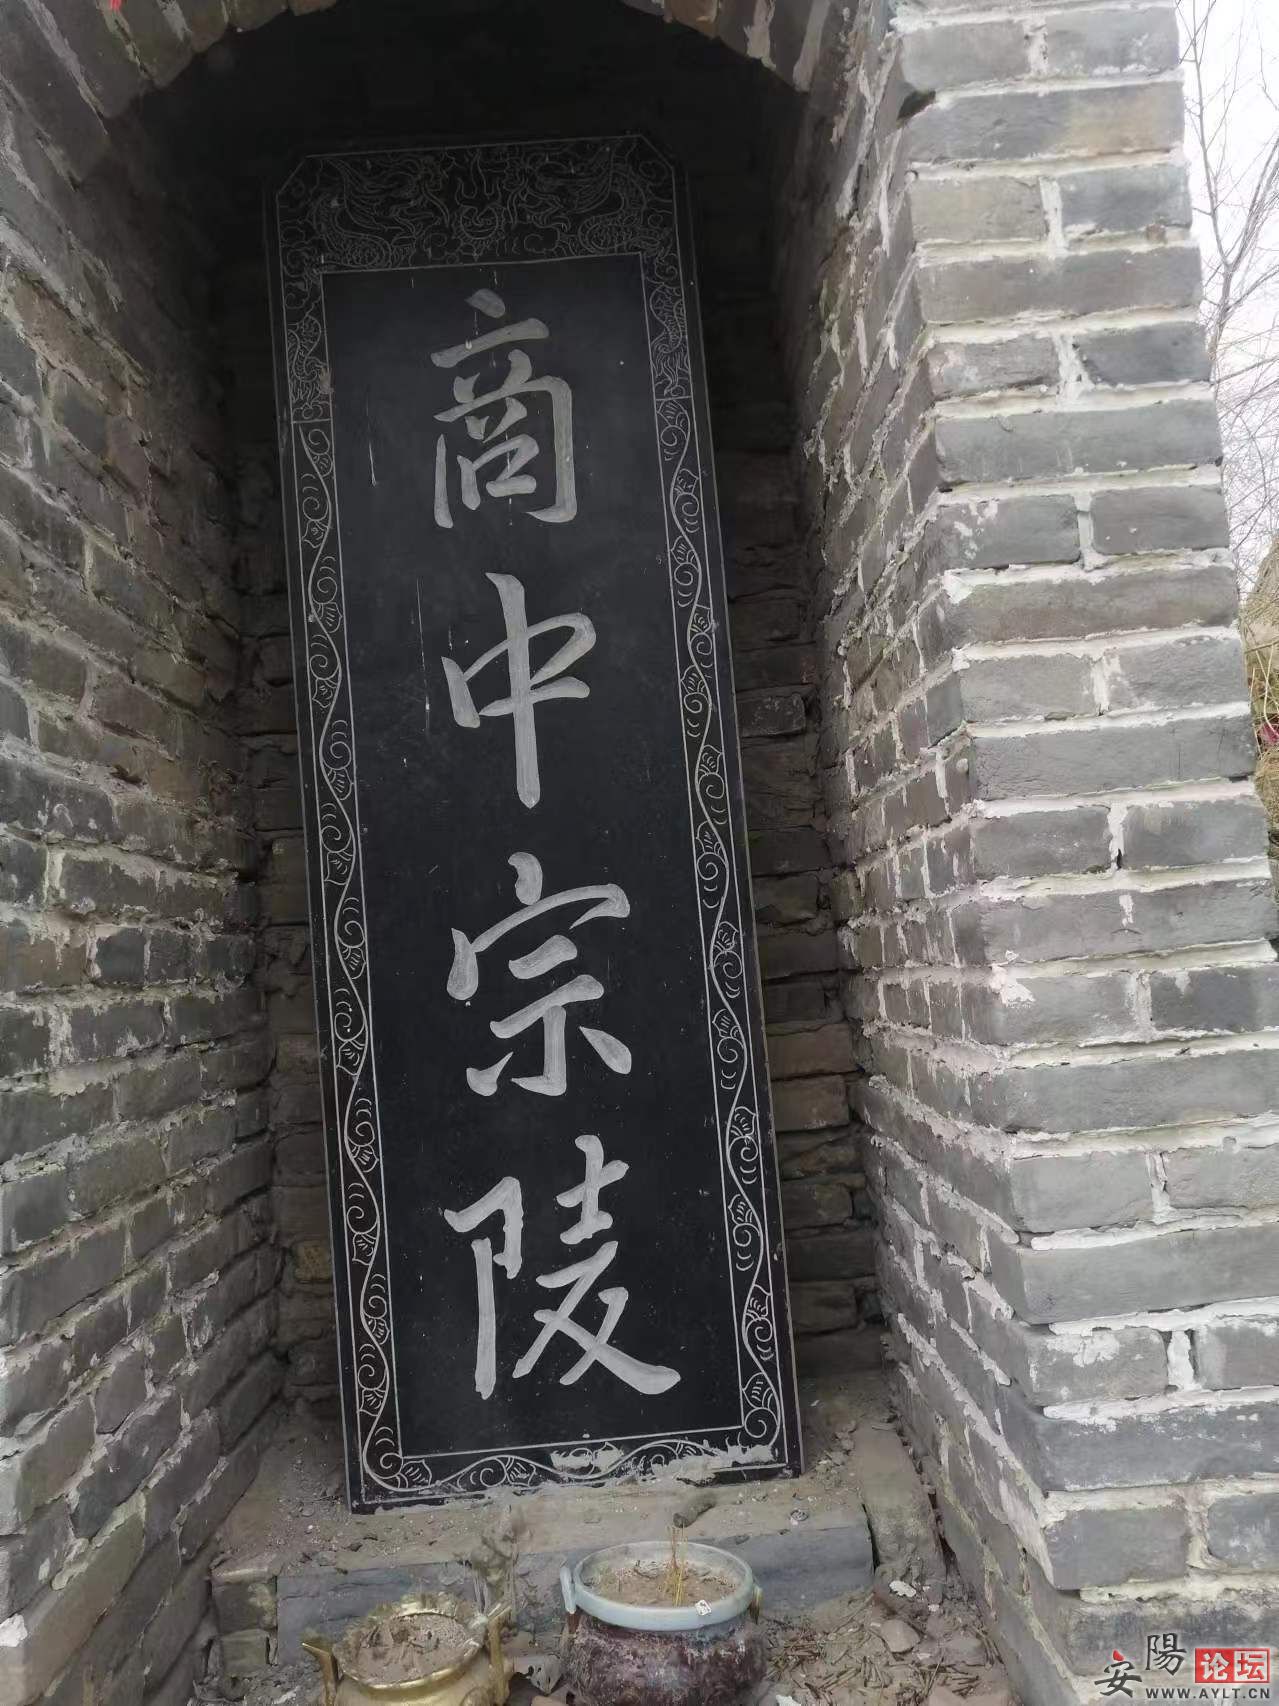 商中宗陵
安陽论坛
WWW.AYLT.CN